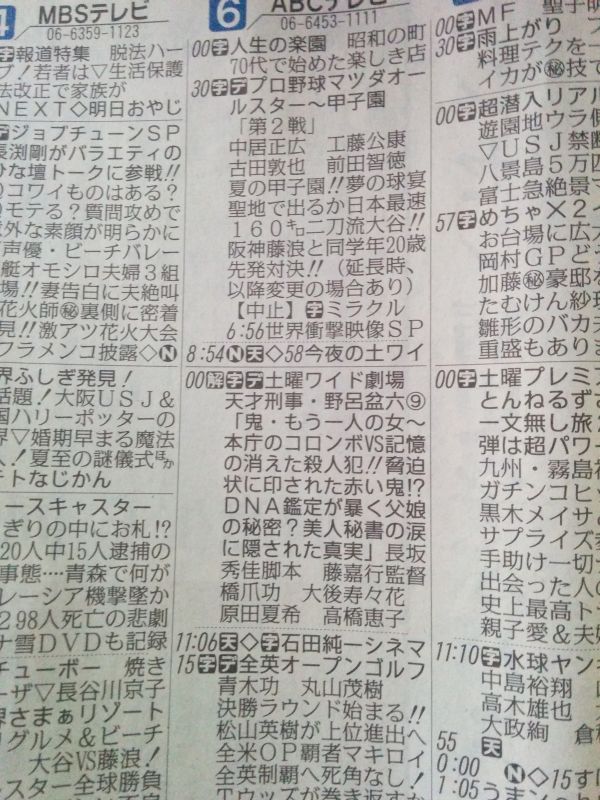 4
MBSテレビ
06-6359-1123
字報道特集 脱法ハー
ブ!若者は▽生活保護
法改正で家族が
NEXT◇明日おやじ
デジョブチューンSP
長渕剛がバラエティの
ひな壇トークに参戦!!
コワイものはある?
モテる?質問攻めで
意外な素顔が明らかに
声優・ビーチバレー
艇オモシロ夫婦3組
場!!妻告白に夫絶叫
花火師㊙裏側に密着
見!!激アツ花火大会
フラメンコ披露◇N
界ふしぎ発見!
話題!大阪USJ&
国ハリーポッターの
界▽婚期早まる魔法
人!夏至の謎儀式ほか
テトなじかん
ースキャスター
ぎりの中にお札!?
20人中15人逮捕の
事態…青森で何が
レーシア機撃墜か
298人死亡の悲劇
ナ雪DVDも記録
チューボー 焼き
ーザ▽長谷川京子
さまぁリゾート
グルメ&ビーチ
大谷VS藤浪!
スター全球勝負
6
ABCテレビ
06-6453-1111
00字人生の楽園 昭和の町
70代で始めた楽しき店
30字デプロ野球マツダオー
ルスター〜甲子園
「第2戦」
中居正広 工藤公康
古田敦也 前田智徳
夏の甲子園!!夢の球宴
聖地で出るか日本最速
160㌔二刀流大谷!!
阪神藤浪と同学年20歳
先発対決!!(延長時、
以降変更の場合あり)
【中止】字ミラクル
6:56世界衝撃映像SP
8:54N天◇58今夜の土ワイ
00解字デ土曜ワイド劇場
天才刑事・野呂盆六⑨
「鬼・もう一人の女〜
本庁のコロンボVS記憶
の消えた殺人犯!!脅迫
状に印された赤い鬼!?
DNA鑑定が暴く父娘
の秘密?美人秘書の涙
に隠された真実」長坂
秀佳脚本 藤嘉行監督
橋爪功 大後寿々花
原田夏希 高橋恵子
11:06天◇字石田純一シネマ
15字デ全英オープンゴルフ
青木功 丸山茂樹
決勝ラウンド始まる!!
松山英樹が上位進出へ
全米OP覇者マキロイ
全英制覇へ死角なし!
Tウッズが巻き返すか
00字MF
30字雨上がり
料理テクを一
イカが㊙技で
00字超潜入リアル
遊園地ウラ側
▽USJ禁断
八景島5万匹
富士急絶景
57字めちゃ×2
お台場に広大
岡村GPど
加藤㊙豪邸を
たむけん紗理
雛形のバカ
重盛もあり
00字土曜プレミア
とんねるず
一文無し旅2
弾は超パワー
九州・霧島
ガチンコヒッ
黒木メイサと
サプライズ
手助け一切
出会った人の
史上最高ト
親子愛&夫婦
11:10字水球ヤンキ
中島裕翔
高木雄也
大政絢 倉
55天
0:00
N◇15す
1:05うまンキ